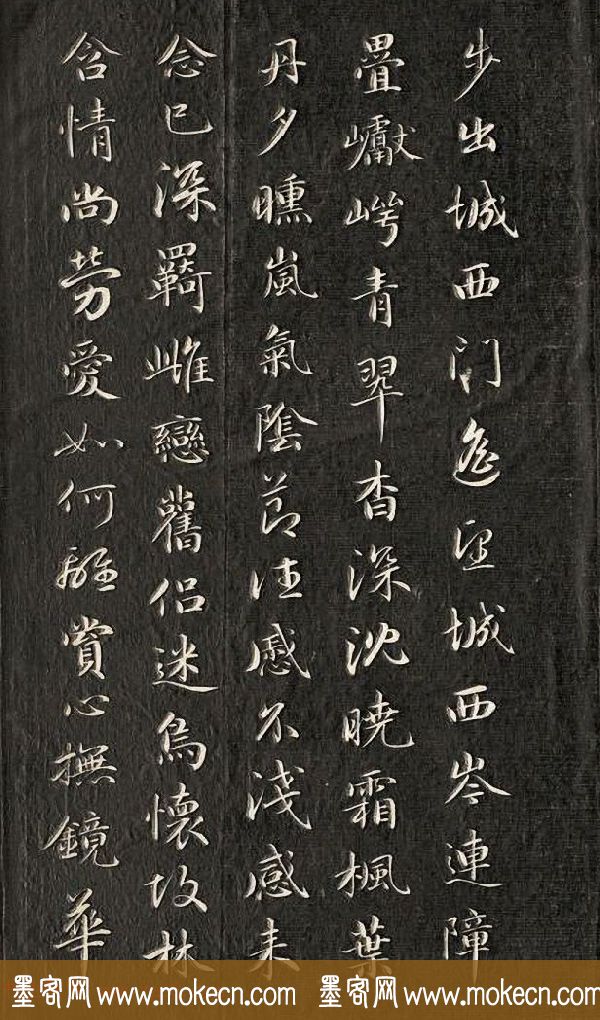 步出城西門遙望城西岑連障
疊巘崿青翠杳深沈曉霜楓葉
丹夕曛嵐氣陰節往慼不淺感來
念已深羇雌戀舊侶迷鳥懷故林
含情尚勞愛如何離賞心撫鏡華
墨客网 www.mokecn.com 墨客网 www.mokecn.com